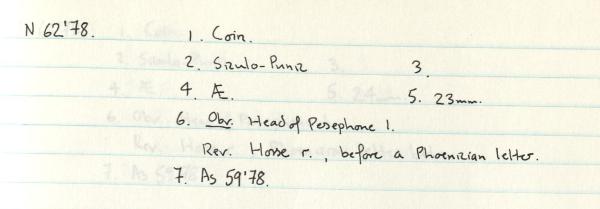 N 62'78. 1. Coin.
2. Siculo-Punic 3.
4. Æ. 5. 23mm.
6. Obv. Head of Pesephone l.
Rev. Horse r., before a Phoenician letter.
7. As 59'78.